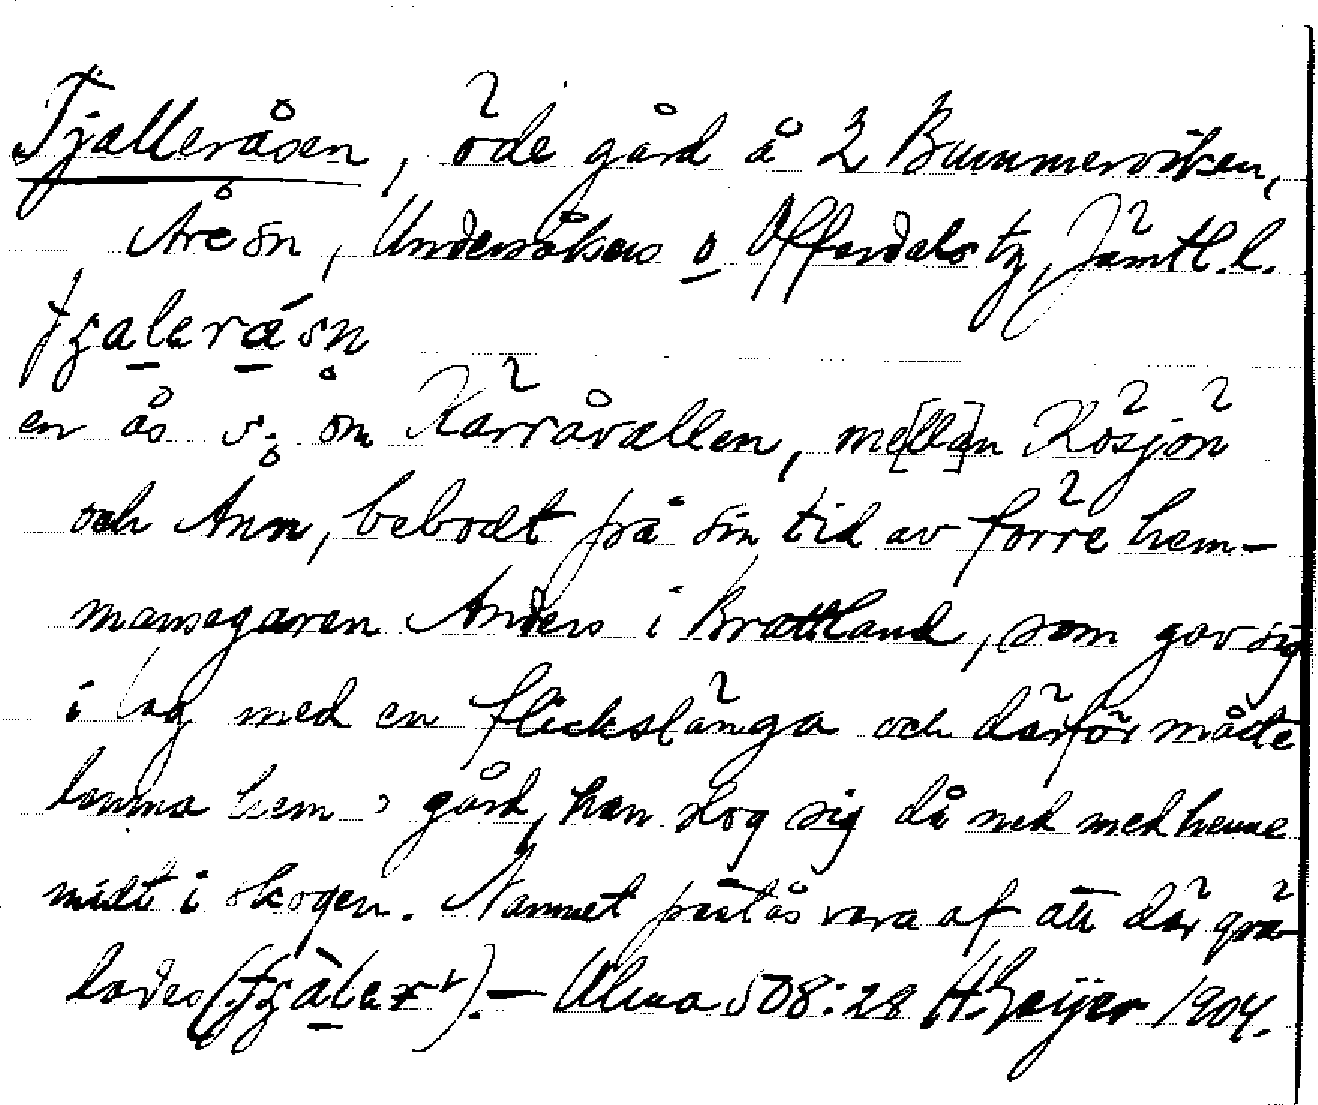 Tjalleråsen, öde gård å 2 Bummerviken,
Åre sn, Undersåkers o Offerdals tg, Jämtl. l.
en ås s. om Kärråvallen, me[lla]n Kösjön
och Ånn, bebodt på sin tid av förre hem-
mansegaren Anders i Brattland, som gav sig
i lag med en flickslänga och därför måste
lemna hem o gård, han slog sig då ned med henne
midt i skogen. Namnet påstås vara af att där grä-
lades - Ulma 508:28 H. Geijer 1904.